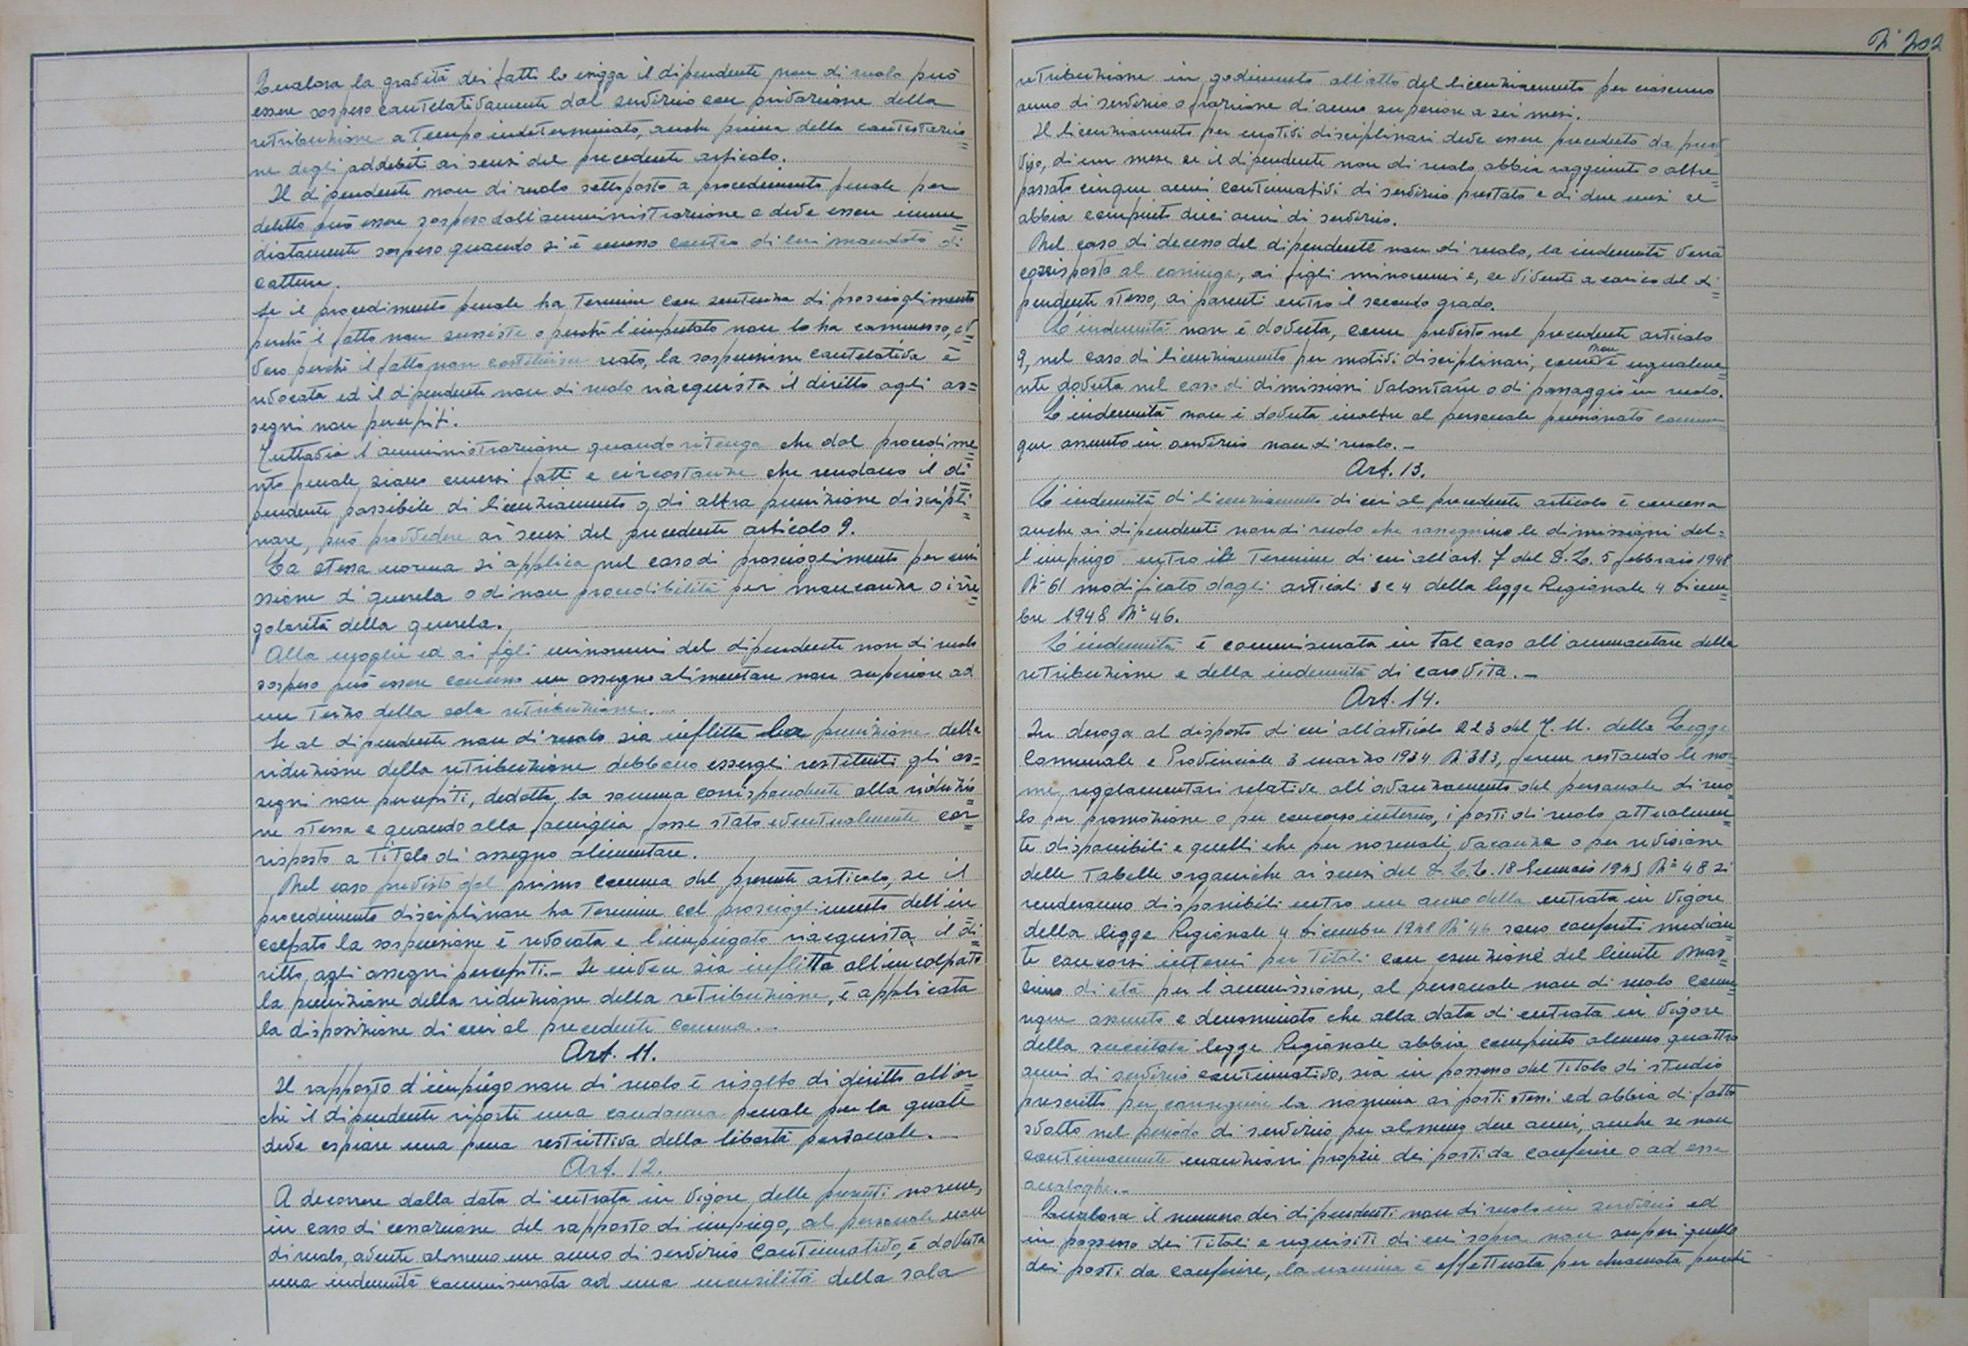 Qualora la gravità dei fatti lo esigga il dipendente non di ruolo può
essere sospeso cautelativamente dal servizio con privazione della
retribuzione a tempo indeterminato, anche prima della contestazio=
ne degli addebiti ai sensi del precedente articolo.
Il dipendente non di ruolo sottoposto a procedimento penale per
delitto può essere sospeso dall'amministrazione e deve essere imme=
diatamente sospeso quando si è emesso contro di lui mandato di
cattura.
Se il procedimento penale ha termine con sentenza di proscioglimento
perché il fatto non sussiste o perché l'imputato non lo ha commesso, ov=
vero perché il fatto non costituisce reato, la sospensione cautelativa è
revocata ed il dipendente non di ruolo riacquista il diritto agli as=
segni non percepiti.
Tuttavia l'amministrazione quando ritenga che dal procedime=
nto penale siano emersi fatti e circostanze che rendano il di=
pendente passibile di licenziamento o di altra punizione discipli=
nare, può provvedere ai sensi del precedente articolo 9.
La stessa norma si applica nel caso di proscioglimento per omi
ssione di querela o di non procedibilità per mancanza o irre=
golarità della querela.
Alla moglie ed ai figli minorenni del dipendente non di ruolo
sospeso può essere concesso un assegno alimentare non superiore ad
un terzo della sola retribuzione.
Se al dipendente non di ruolo sia inflitta la punizione della
riduzione della retribuzione debbono essergli restituiti gli as=
segni non percepiti, dedotta la somma corrispondente alla riduzio=
ne stessa e quando alla famiglia fosse stato eventualmente cor=
risposto a titolo di assegno alimentare.
Nel caso previsto dal primo comma del presente articolo, se il
procedimento disciplinare ha termine col proscioglimento dell'in=
colpato la sospensione è revocata e l'impiegato riacquista il di=
ritto agli assegni percepiti.- Se invece sia inflitta all'incolpato
la punizione della riduzione della retribuzione, è applicata
la disposizione di cui al precedente comma.
Art. 11.
Il rapporto d'impiego non di ruolo è risolto di diritto allor=
ché il dipendente riporti una condanna penale per la quale
deve espiare una pena restrittiva della libertà personale.
Art. 12.
A decorrere dalla data di entrata in vigore delle presenti norme,
in caso di cessazione del rapporto di impiego, al personale non
di ruolo, avente almeno un anno di servizio continuativo, è dovuta
una indennità commisurata ad una mensilità della sola
N° 202
retribuzione in godimento all'atto del licenziamento per ciascuno
anno di servizio o frazione d'anno superiore a sei mesi.
Il licenziamento per motivi disciplinari deve essere preceduto da prea=
viso, di un mese se il dipendente non di ruolo abbia raggiunto o oltre=
passato cinque anni continuativi di servizio prestato e di due mesi se
abbia compiuto dieci anni di servizio.
Nel caso di decesso del dipendente non di ruolo, la indennità verrà
corrisposta al coniuge, ai figli minorenni e, se viventi a carico del di=
pendente stesso, ai parenti entro il secondo grado.
L'indennità non è dovuta, come previsto nel precedente articolo
9, nel caso di licenziamento per motivi disciplinari, come non è ugualme=
nte dovuta nel caso di dimissioni volontarie o di passaggio in ruolo.
L'indennità non è dovuta inoltre al personale pensionato comun
que assunto in servizio non di ruolo. -
Art. 13.
L'indennità di licenziamento di cui al precedente articolo è concessa
anche ai dipendenti non di ruolo che rassegnino le dimissioni del=
l'impiego entro il termine di cui all'art. 7 del D.L. 5 febbraio 1948
N° 61 modificato dagli articoli 3 e 4 della legge Regionale 4 dicem=
bre 1948 N° 46.
L'indennità è commisurata in tal caso all'ammontare della
retribuzione e della indennità di caro vita. -
Art. 14.
In deroga al disposto di cui all'articolo 223 del T. U. della Legge
Comunale e Provinciale 3 marzo 1934 N° 383, ferme restando le nor=
me regolamentari relative all'avanzamento del personale di ruo=
lo per promozione o per concorso interno, i posti di ruolo attualmen=
te disponibili e quelli che per normali vacanze o per revisione
delle tabelle organiche ai sensi del D. L. L. 18 Gennaio 1945 N° 48 si
renderanno disponibili entro un anno della entrata in vigore
della legge Regionale 4 dicembre 1948 N° 46 sono conferiti median=
te concorsi interni per titoli con esenzione del limite mas=
simo di età per l'ammissione, al personale non di ruolo comu=
nque assunto e denominato che alla data di entrata in vigore
della succitata legge Regionale abbia compiuto almeno quattro
anni di servizio continuativo, sia in possesso del titolo di studio
prescritto per conseguire la nomina ai posti stessi ed abbia di fatto
svolto nel periodo di servizio per almeno due anni, anche se non
continuamente mansioni proprie dei posti da conferire o ad esse
analoghe. -
Qualora il numero dei dipendenti non di ruolo in servizio ed
in possesso dei titoli e requisiti di cui sopra non superi quello
dei posti da conferire, la nomina è effettuata per chiamata